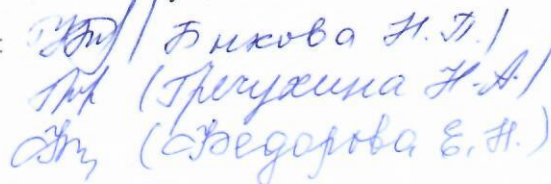 Быкова Н.П./
(Гречухина Н.А./
(Федорова Е.Н.)